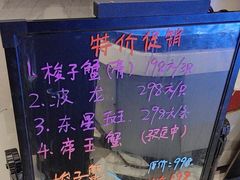 特价促销
1.梭子蟹(清) 198元/只
2.波龙 298元/只
3.东星斑 298元/条
4.帝王蟹 (预定中)
价:998